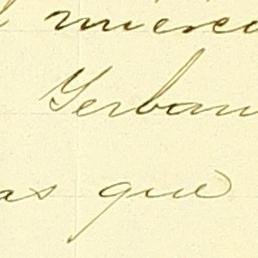 mierco
Yerban
as que